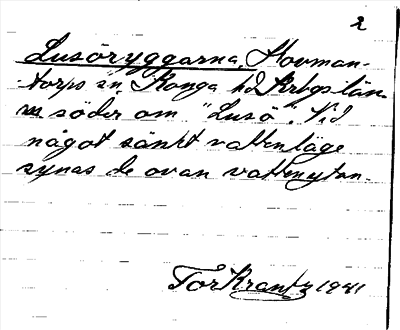 2
Lusöryggarna, Hovman-
torps sn, Konga hd Krbgs län.
söder om "Lusö". Vid
något sänkt vattenläge
synas de ovan vattenytan.
Tor Krantz 1941